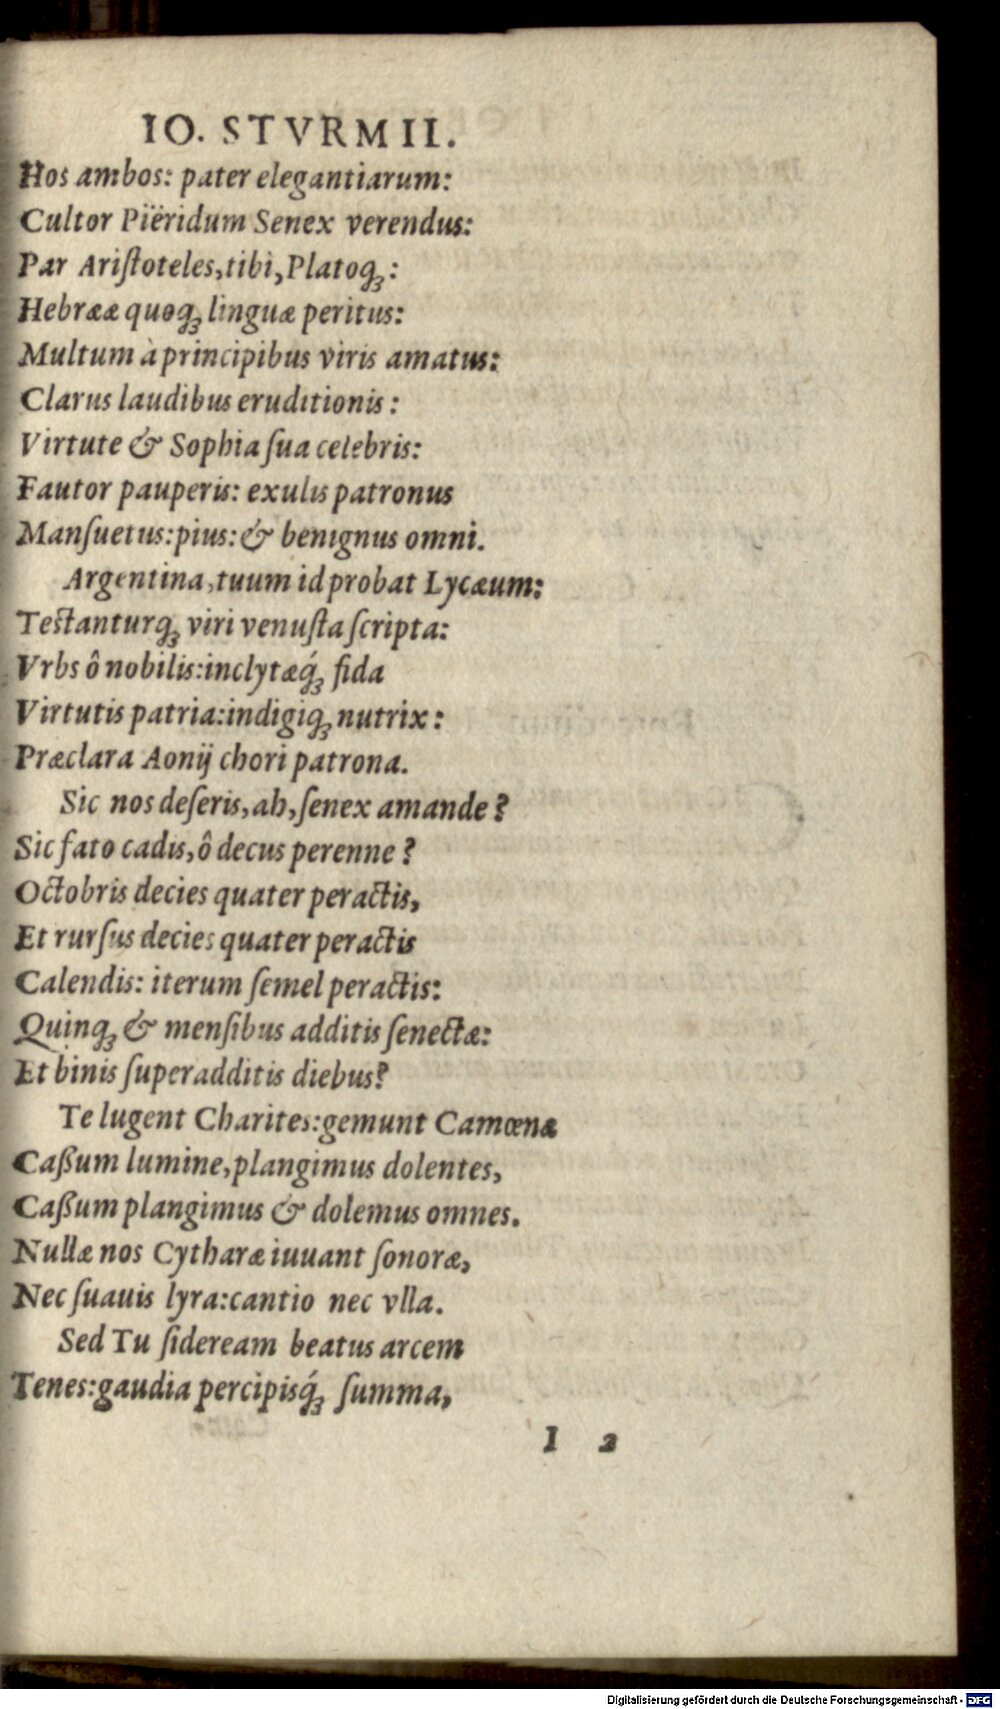 IO. STVRMII.
Hos ambos: pater elegantiarum:
Cultor Piëridum Senex verendus:
Par Ariſtoteles, tibi, Platoq́ꝫ:
Hebrææ quoqꝫ linguæ peritus:
Multum à principibus viris amatus:
Clarus laudibus eruditionis:
Virtute & Sophia ſua celebris:
Fautor pauperis: exulis patronus
Manſuetus: pius: & benignus omni.
Argentina, tuum id probat Lycæum:
Teſtanturqꝫ viri venuſta ſcripta:
Vrbs ô nobilis: inclytæq́ꝫ fida
Virtutis patria: indigiqꝫ nutrix:
Præclara Aonij chori patrona.
Sic nos deſeris, ah, ſenex amande?
Sic fato cadis, ô decus perenne?
Octobris decies quater peractis,
Et rurſus decies quater peractis
Calendis: iterum ſemel peractis:
Quinqꝫ & menſibus additis ſenectæ:
Et binis ſuperadditis diebus?
Te lugent Charites: gemunt Camœnæ
Caßum lumine, plangimus dolentes,
Caßum plangimus & dolemus omnes.
Nullæ nos Cytharæ iuuant ſonoræ,
Nec ſuauis lyra: cantio nec vlla.
Sed Tu ſideream beatus arcem
Tenes: gaudia percipisq́ꝫ ſumma,
I 2
Digitalisierung gefördert durch die Deutsche Forschungsgemeinschaft - DFG